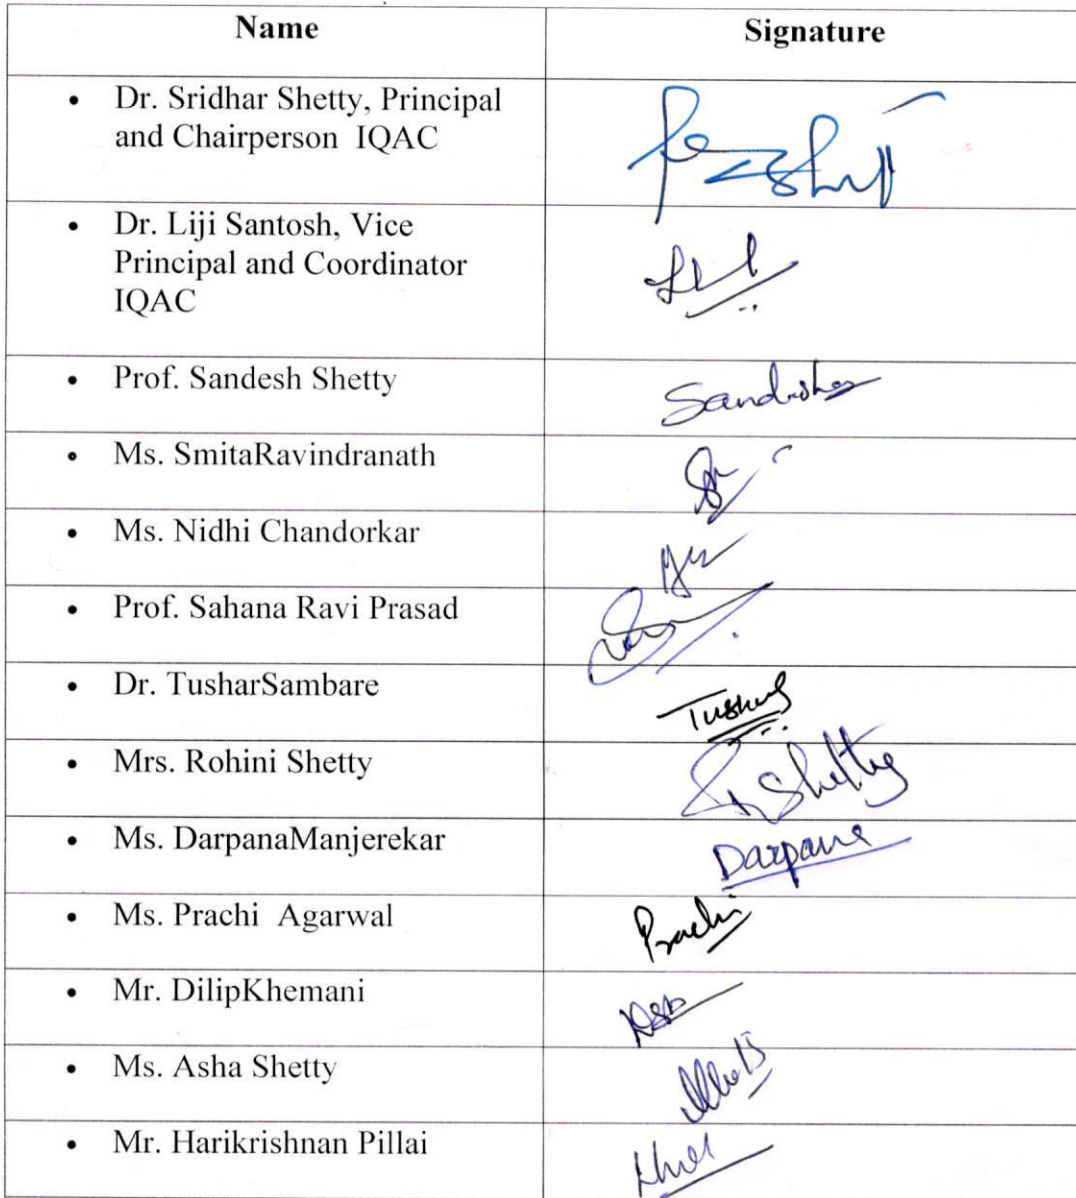 Name Signature
• Dr. Sridhar Shetty, Principal
and Chairperson IQAC
• Dr. Liji Santosh, Vice
Principal and Coordinator
IQAC
• Prof. Sandesh Shetty
• Ms. SmitaRavindranath
• Ms. Nidhi Chandorkar
• Prof. Sahana Ravi Prasad
• Dr. TusharSambare
• Mrs. Rohini Shetty Shetty
• Ms. DarpanaManjerekar Darpana
• Ms. Prachi Agarwal Prachi
• Mr. DilipKhemani
• Ms. Asha Shetty
• Mr. Harikrishnan Pillai